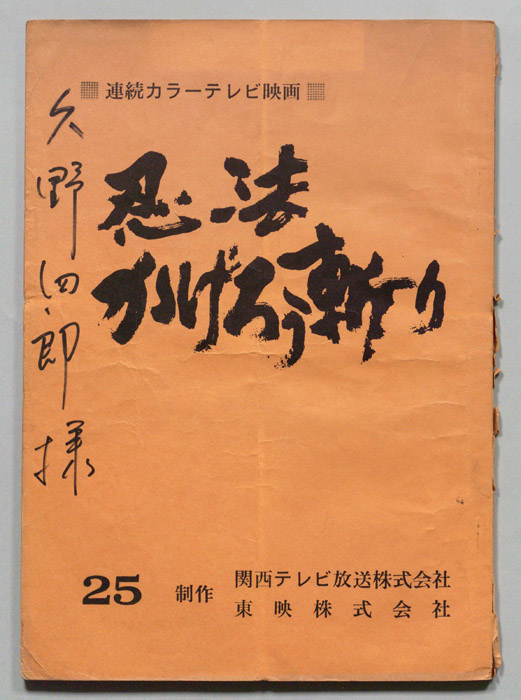 連続カラーテレビ映画
忍法
かげろう斬り
久野四郎様
25
制作
関西テレビ放送株式会社
東映株式会社